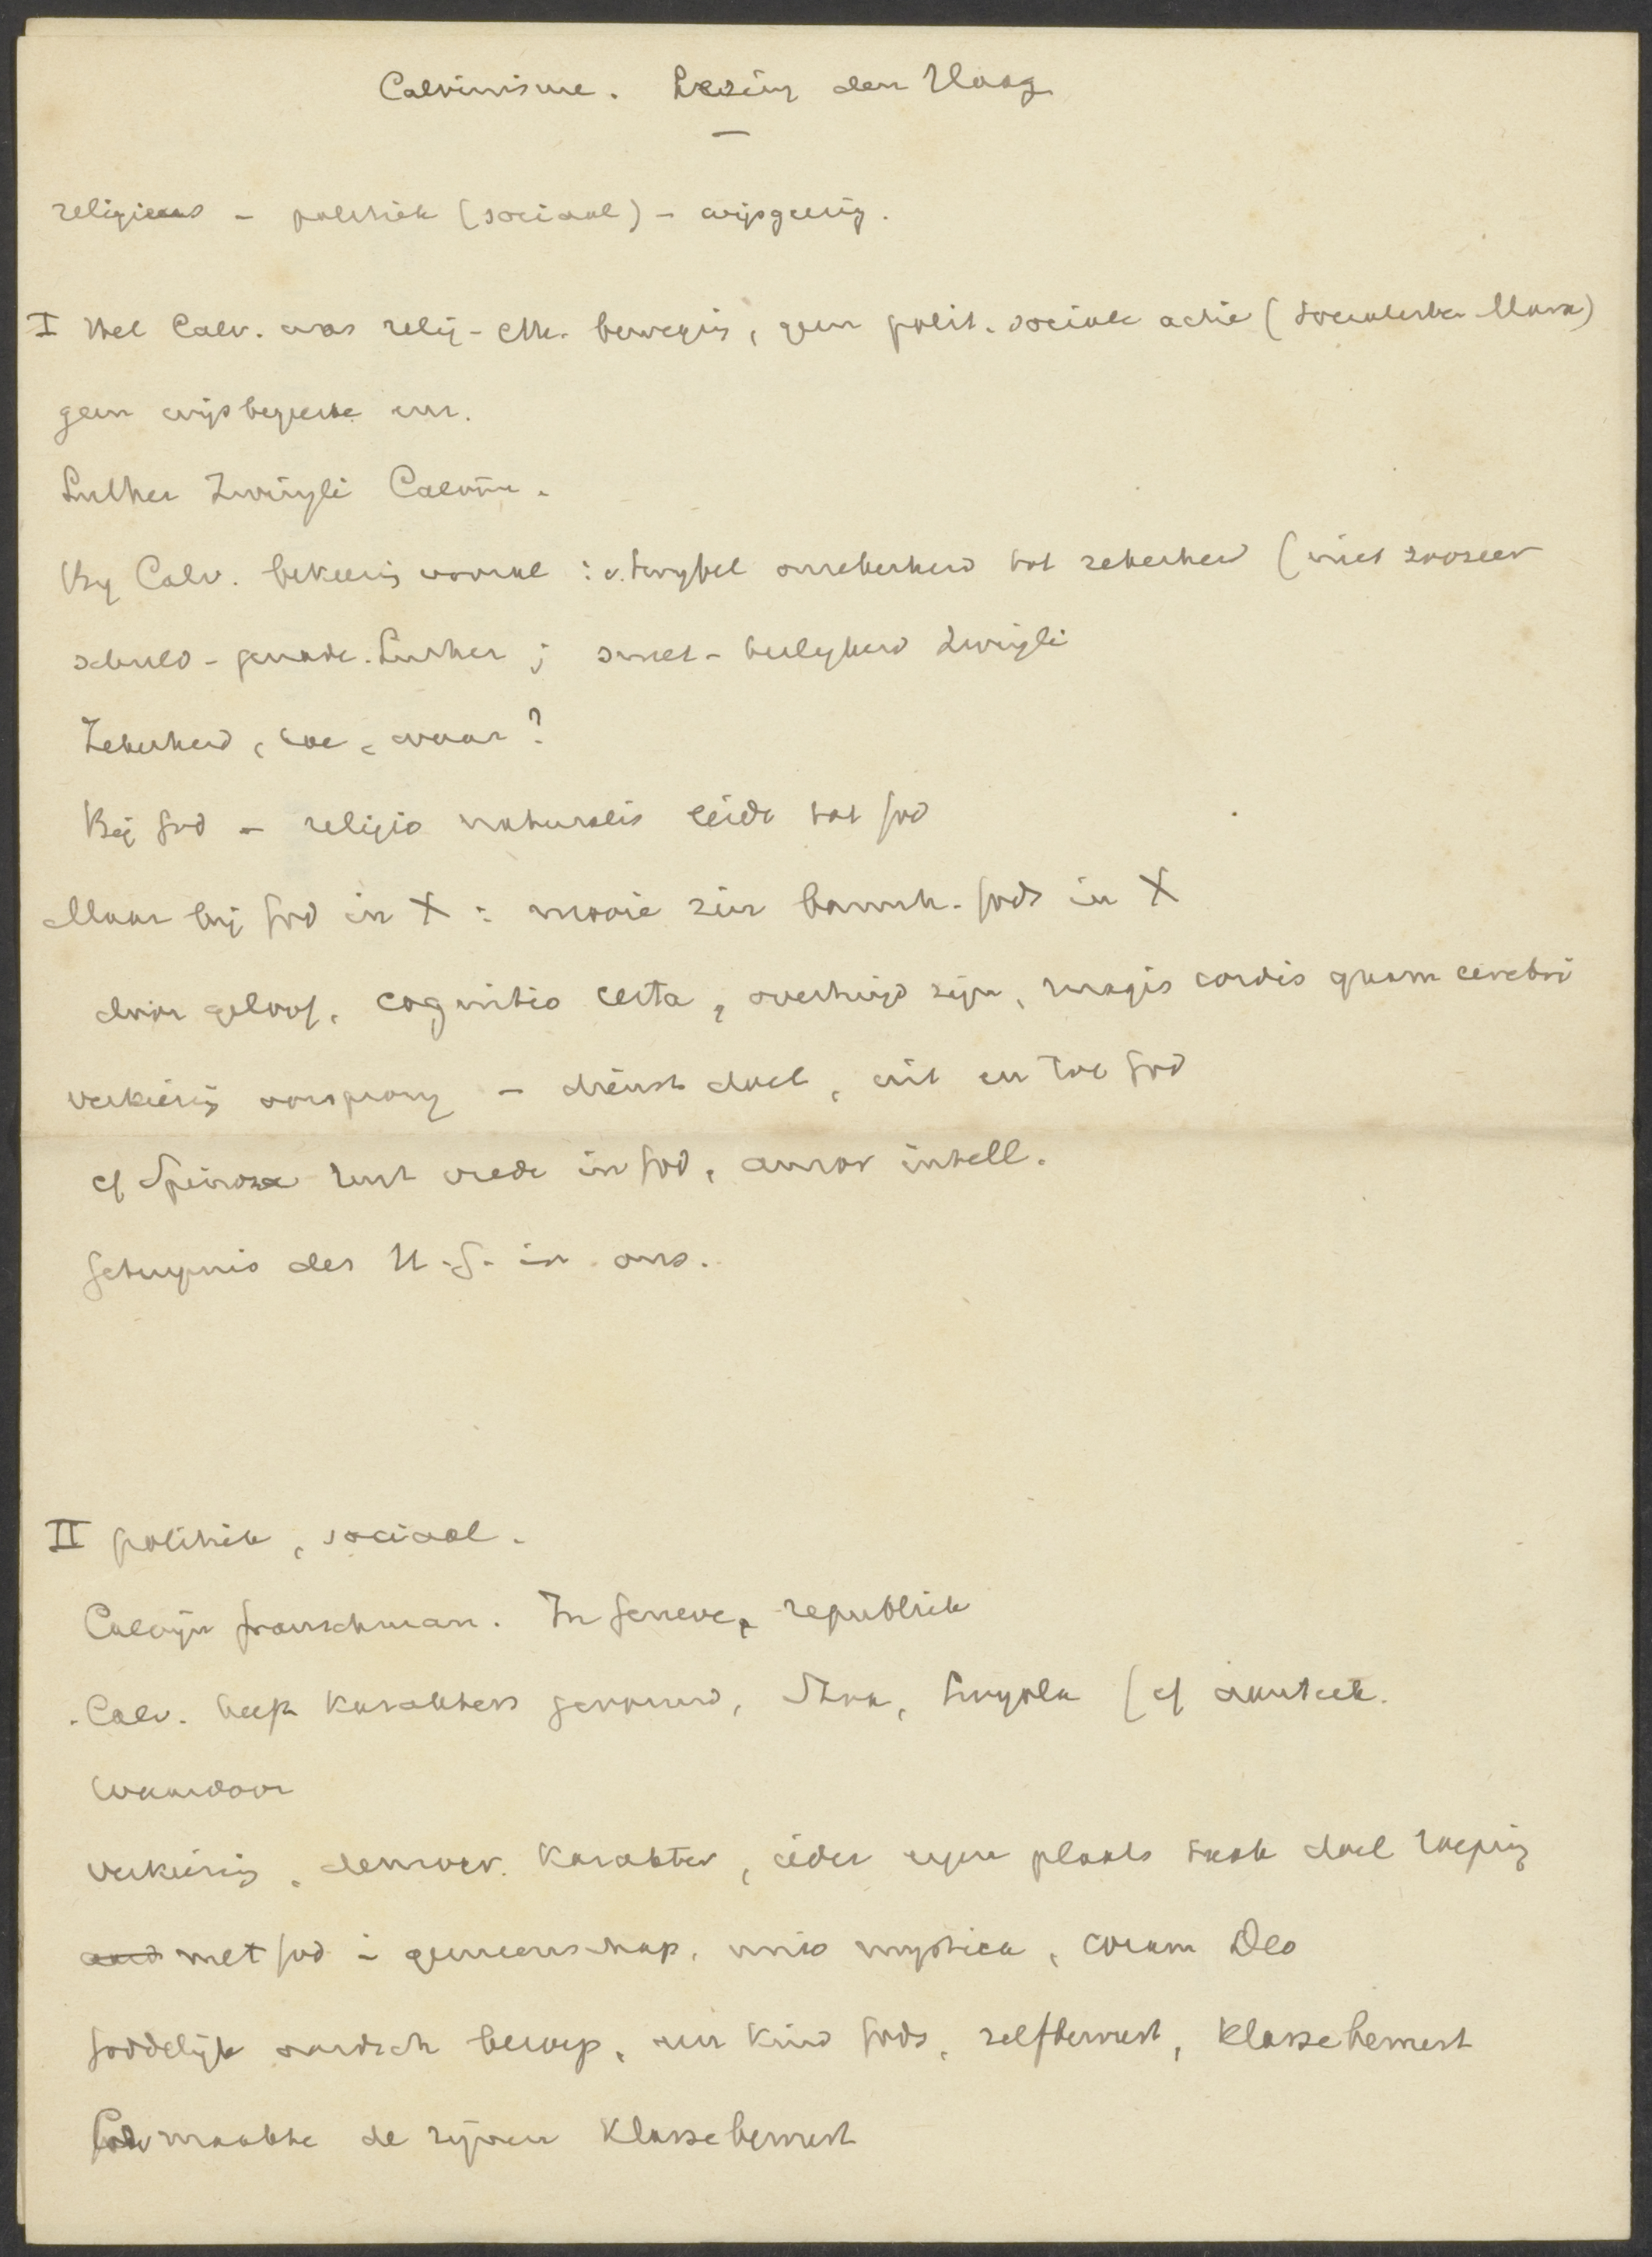 Calvinisme. Lezing den Haag
religieus - politiek (sociaal) - wijsgeerig.
I Het Calv. was relig - eth. beweging, geen polit. sociale actie (socialisten Marx)
geen wijsbegeerte enz.
Luther Zwingli Calvijn.
Bij Calv. bekeering vooral : v. twijfel onzekerheid tot zekerheid (niet zoozeer
schuld - genade. Luther ; smet - heiligheid Zwingli
Zekerheid, hoe, waar?
Bij God - religio naturalis leidt tot God
Maar bij God in X : mooie zin barmh. Gods in X
door geloof, cognitio certa, overtuigd zijn, magis cordis quam cerebri
verkiezing oorsprong - dienst doel, uit en toe God
cf Spinoza rust vrede in God, amor intell.
Getuignis des H. G. in ons.
II politiek, sociaal.
Calvijn Franschman. In Geneve, republiek
Calv. heeft karakters gevormd, Stoa, Loyola (cf
waardoor
verkiezing, democr. karakter, ieder eigen plaats taak doel roeping
met God in gemeenschap, unio mystica, coram Deo
Goddelijk aardsch beroep, een kind Gods, zelfbewust, klassebewust
Calv maakte de zijnen klassebewust